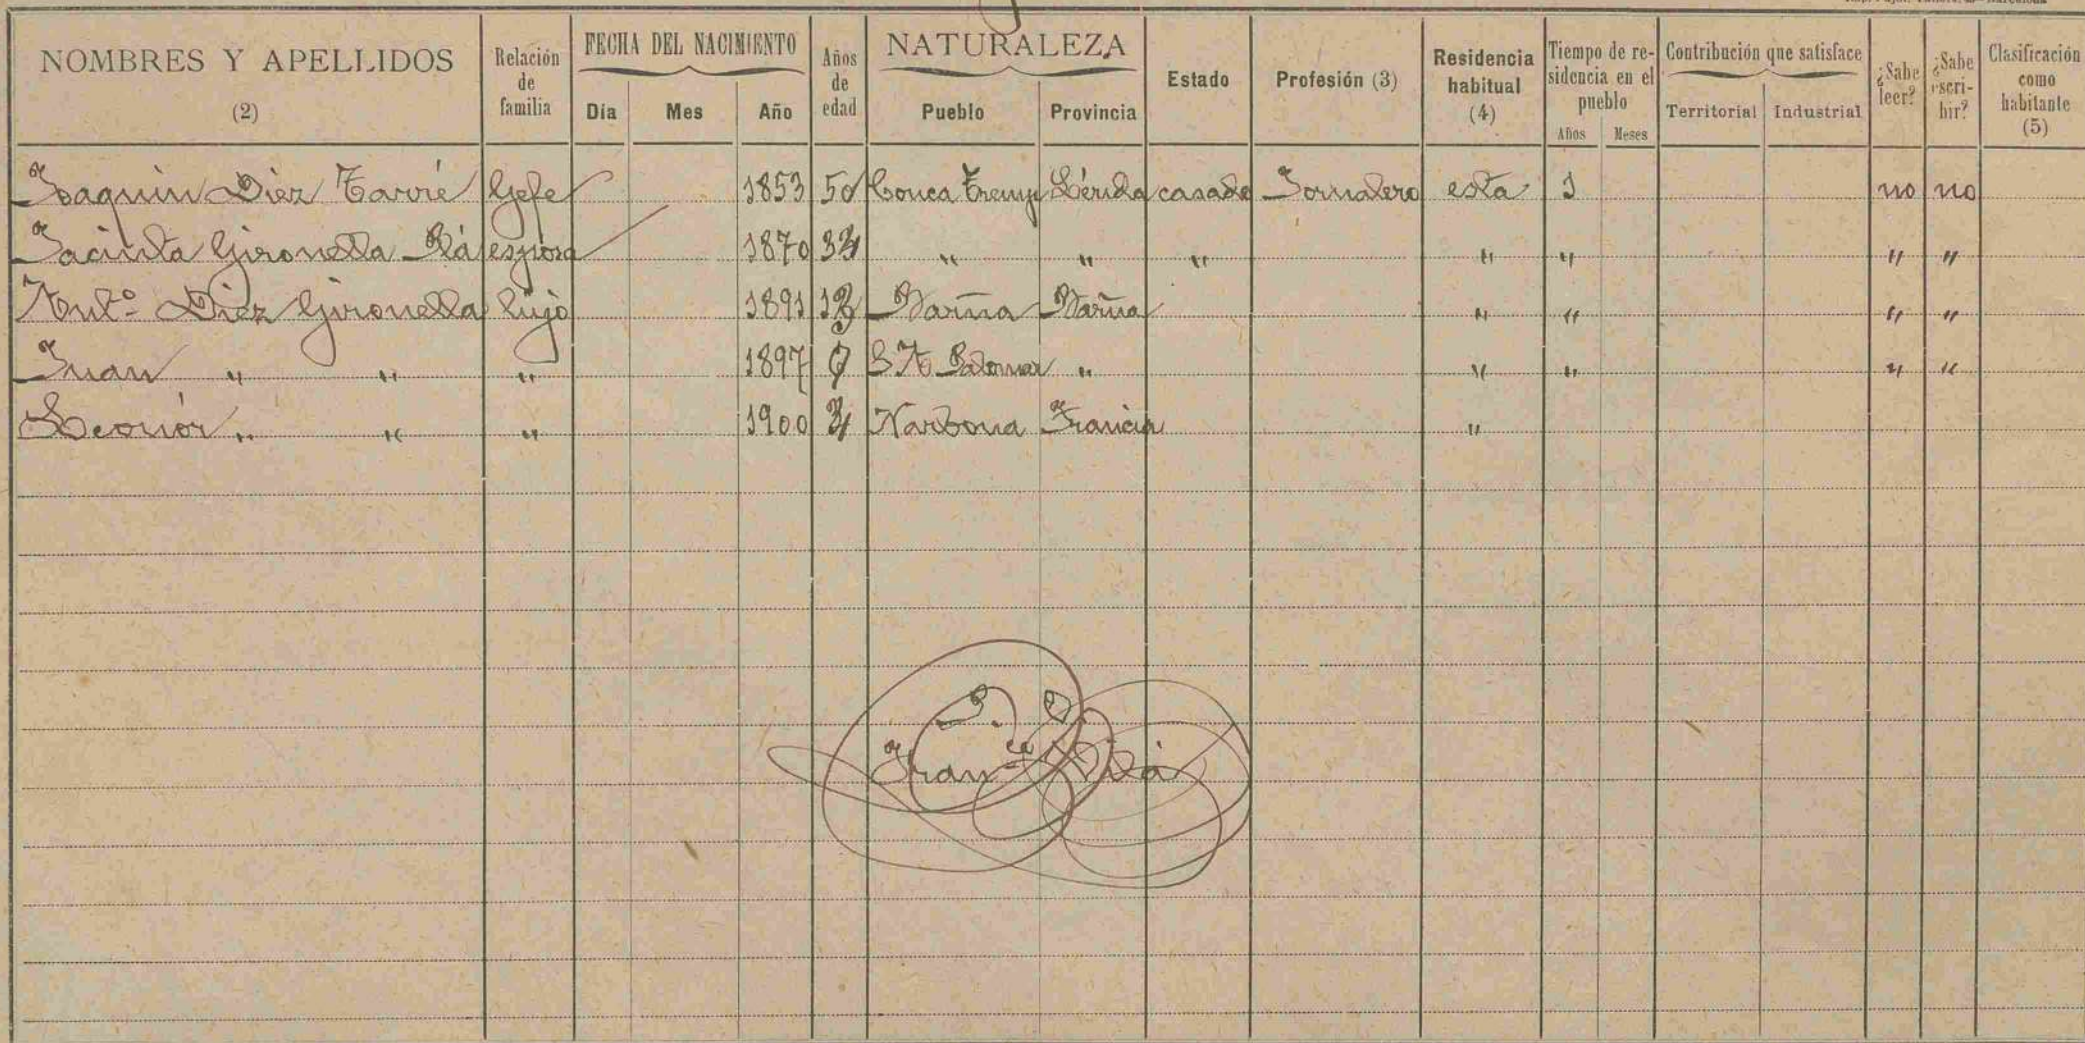 NOMBRES Y APELLIDOS (2) Relación de familia FECHA DEL NACIMIENTO Día Mes Año Años de edad NATURALEZA Pueblo Provincia Estado Profesión (3) Residencia habitual (4) Tiempo de residencia en el pueblo Años Meses Contribución que satisface Territorial Industrial ¿Sabe leer? ¿Sabe escribir? Clasificación como habitante (5)
Joaquin Diez Tarrié Gefe 1853 50 Conca Tremp Lérida casado Jornalero esta 1 no no
Jacinta Gironella Plá esposa 1870 34 " " " " " " "
Antº Diez Gironella hijo 1891 13 Barña Barña " " " "
Juan " " " 1897 7 S A Palomar " " " " "
Leonór " " " 1900 4 Narbona Francia "
Franco Vilá